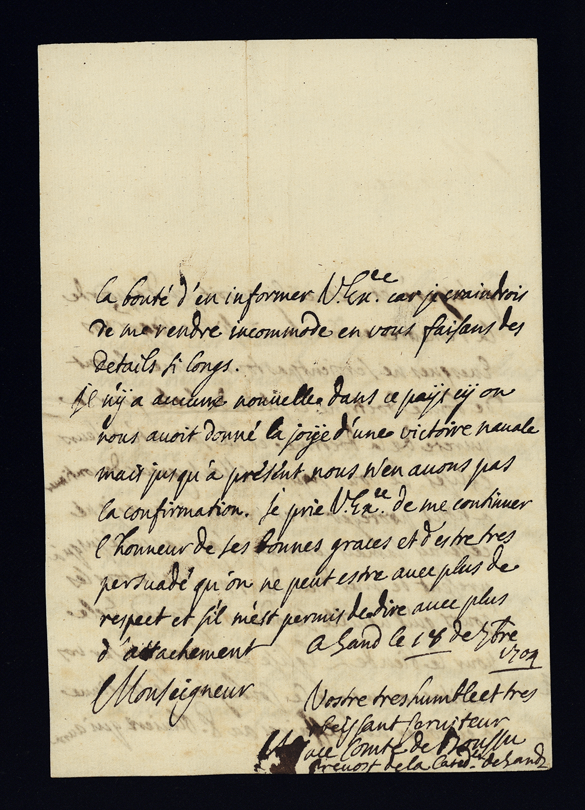 la bonté d'en informer V. Ex.ce car je craindrois
de me rendre incommode en vous faisans des
details si longs.
Il n'ÿ a aucune nouvelle dans ce païs cÿ on
nous avoit donné la joÿe d'une victoire navale
mais jusqu'à présént nous n'en avons pas
la confirmation. Je prie V. Ex.ce de me continuer
l'honneur de ses bonnes graces et d'estre tres
persuadé qu'on ne peut estre avec plus de
respect et s'il m'est permis de dire avec plus
d'attachement A Gand le 18 de 7bre
1704
Monseigneur Vostre tres humble et tres
obeissant serviteur
Comte de Boussu
Prevost de la Cated. de Gand